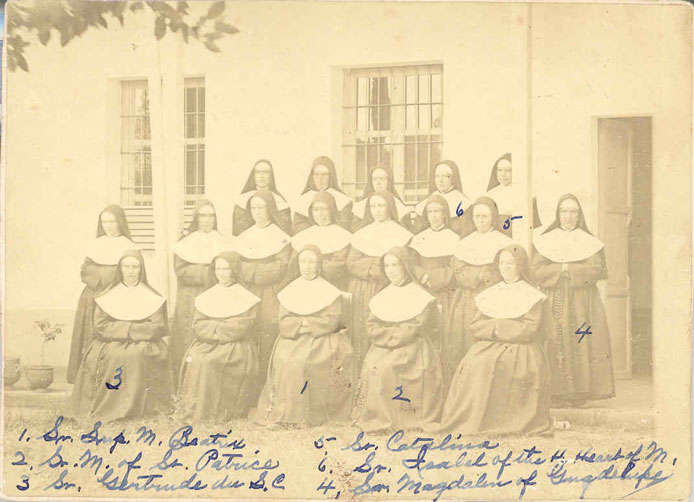 6
5
4
3
1
2
1. Sr. Sup. M. Beatrix
2. Sr. M. of St. Patrice
3 Sr. Gertrude du S.C
5 Sr. Catalina
6. Sr. Isabel of the H. Heart of M.
4, Sr. Magdalen of Guadelupe